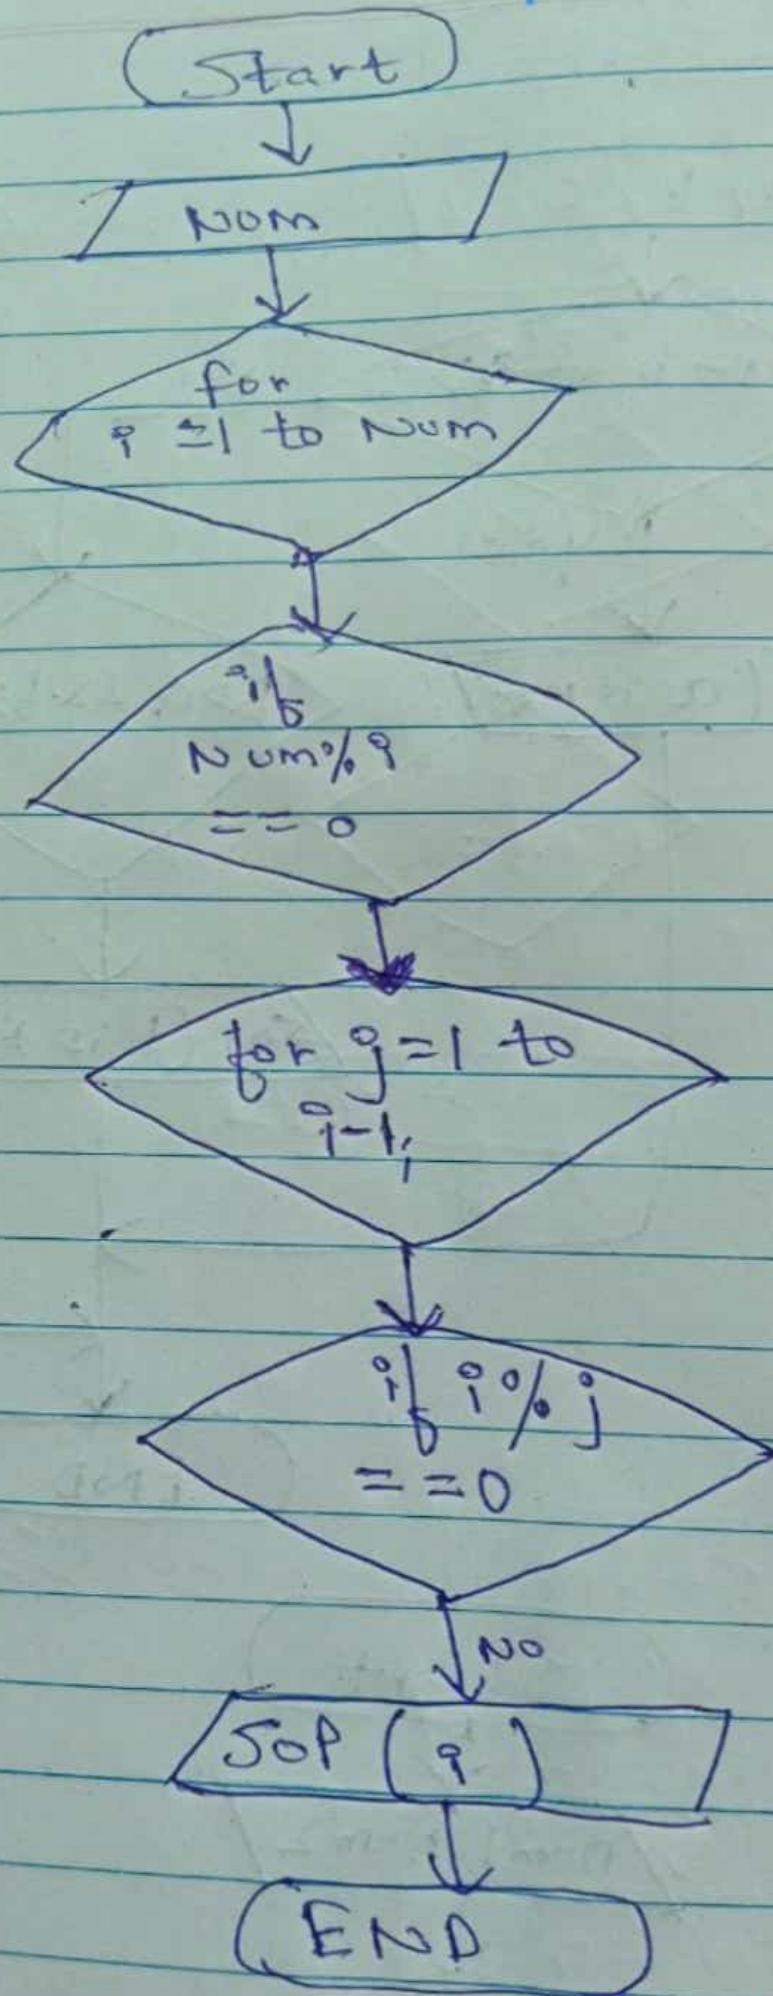 Start
Num
for
i = 1 to Num
if
Num % i
== 0
for j = 1 to
i-1;
if i % j
== 0
NO
SOP ( i )
END